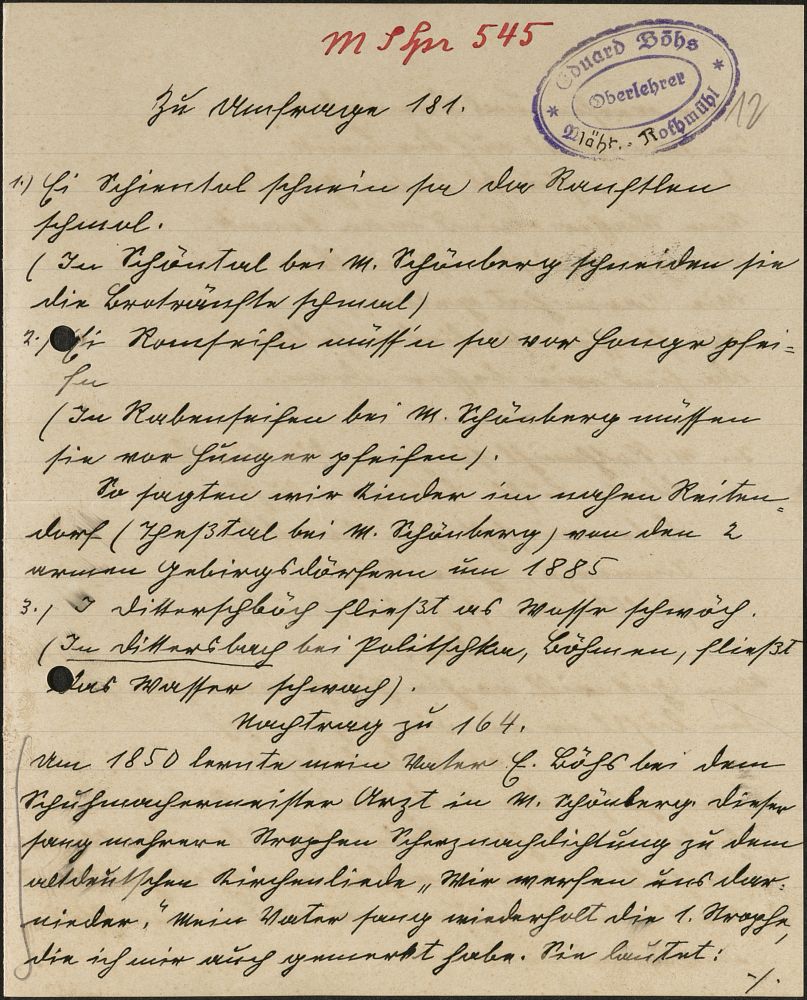 M Spr 545
Eduard Böhs
Oberlehrer
Mähr.-Rothmühl
12
Zu Umfrage 181.
1.) Ei Schiental schnein sa da Ranftlen
schmol.
(In Schöntal bei M. Schönberg schneiden sie
die Brotränfte schmal)
2.) Ei Romseifn müss'n sa vor Honge pfei=
fn
(In Rabenseifen bei M. Schönberg müssen
sie vor Hunger pfeifen).
So sagten wir Kinder im nahen Reiten=
dorf (Theßtal bei M. Schönberg) von den 2
armen Gebirgsdörfern um 1885
3.) I Ditterschböch fließt as Wossr schwöch.
(In Dittersbach bei Politschka, Böhmen, fließt
das Wasser schwach).
Nachtrag zu 164.
Um 1850 lernte mein Vater E. Böhs bei dem
Schuhmachermeister Arzt in M. Schönberg. Dieser
sang mehrere Strophen Scherznachdichtung zu dem
altdeutschen Kirchenliede „Wir werfen uns dar=
nieder." Mein Vater sang wiederholt die 1. Strophe,
die ich mir auch gemerkt habe. Sie lautet:
-/.